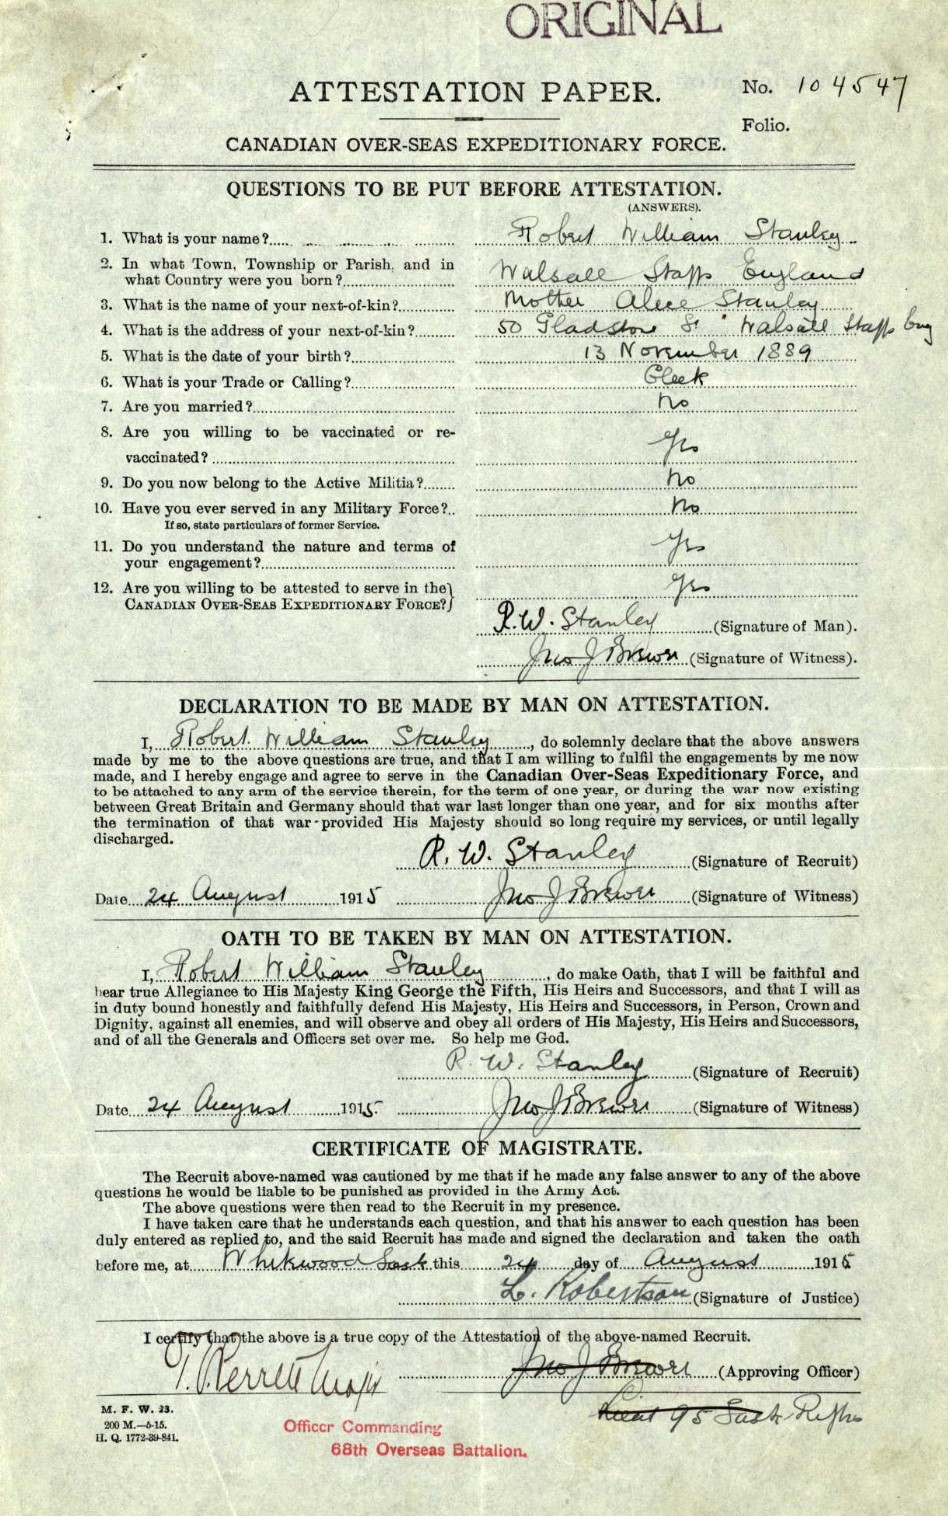 ORIGINAL
ATTESTATION PAPER.
No. 104547
Folio.
CANADIAN OVER-SEAS EXPEDITIONARY FORCE.
QUESTIONS TO BE PUT BEFORE ATTESTATION.
(ANSWERS).
1. What is your name? Robert William Stanley
2. In what Town, Township or Parish, and in
what Country were you born? Walsall Staffs England
3. What is the name of your next-of-kin? Mother Alice Stanley
4. What is the address of your next-of-kin? 50 Gladstone St Walsall Staffs Eng
5. What is the date of your birth? 13 November 1889
6. What is your Trade or Calling? Clerk
7. Are you married? No
8. Are you willing to be vaccinated or re-
vaccinated? Yes
9. Do you now belong to the Active Militia? No
10. Have you ever served in any Military Force? No
If so, state particulars of former Service.
11. Do you understand the nature and terms of
your engagement? Yes
12. Are you willing to be attested to serve in the
CANADIAN OVER-SEAS EXPEDITIONARY FORCE? Yes
R.W. Stanley (Signature of Man).
Jno J Brewer (Signature of Witness).
DECLARATION TO BE MADE BY MAN ON ATTESTATION.
I, Robert William Stanley, do solemnly declare that the above answers
made by me to the above questions are true, and that I am willing to fulfil the engagements by me now
made, and I hereby engage and agree to serve in the Canadian Over-Seas Expeditionary Force, and
to be attached to any arm of the service therein, for the term of one year, or during the war now existing
between Great Britain and Germany should that war last longer than one year, and for six months after
the termination of that war provided His Majesty should so long require my services, or until legally
discharged.
R. W. Stanley (Signature of Recruit)
Date 24 August 1915 Jno J Brewer (Signature of Witness)
OATH TO BE TAKEN BY MAN ON ATTESTATION.
I, Robert William Stanley, do make Oath, that I will be faithful and
bear true Allegiance to His Majesty King George the Fifth, His Heirs and Successors, and that I will as
in duty bound honestly and faithfully defend His Majesty, His Heirs and Successors, in Person, Crown and
Dignity, against all enemies, and will observe and obey all orders of His Majesty, His Heirs and Successors,
and of all the Generals and Officers set over me. So help me God.
R. W. Stanley (Signature of Recruit)
Date 24 August 1915 Jno J Brewer (Signature of Witness)
CERTIFICATE OF MAGISTRATE.
The Recruit above-named was cautioned by me that if he made any false answer to any of the above
questions he would be liable to be punished as provided in the Army Act.
The above questions were then read to the Recruit in my presence.
I have taken care that he understands each question, and that his answer to each question has been
duly entered as replied to, and the said Recruit has made and signed the declaration and taken the oath
before me, at Whitewood Sask this 24 day of August 1915
L. Robertson (Signature of Justice)
I certify that the above is a true copy of the Attestation of the above-named Recruit.
T. Perrett Major Jno J Brewer (Approving Officer)
Lieut 95 Sask Rifles
M. F. W. 23.
200 M.—5-15.
H. Q. 1772-39-841.
Officer Commanding
68th Overseas Battalion.